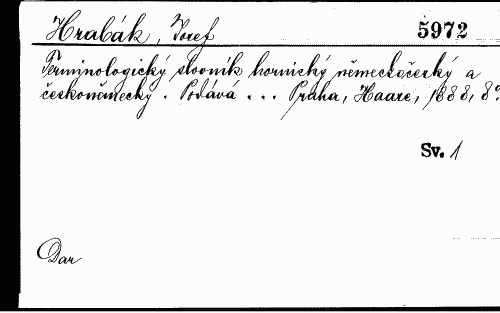 Hrabák, Josef 5972
Terminologický slovník hornický německočeský a
českoněmecký. Podává ... Praha, Haase, 1888, 8°
Sv. 1
Dar